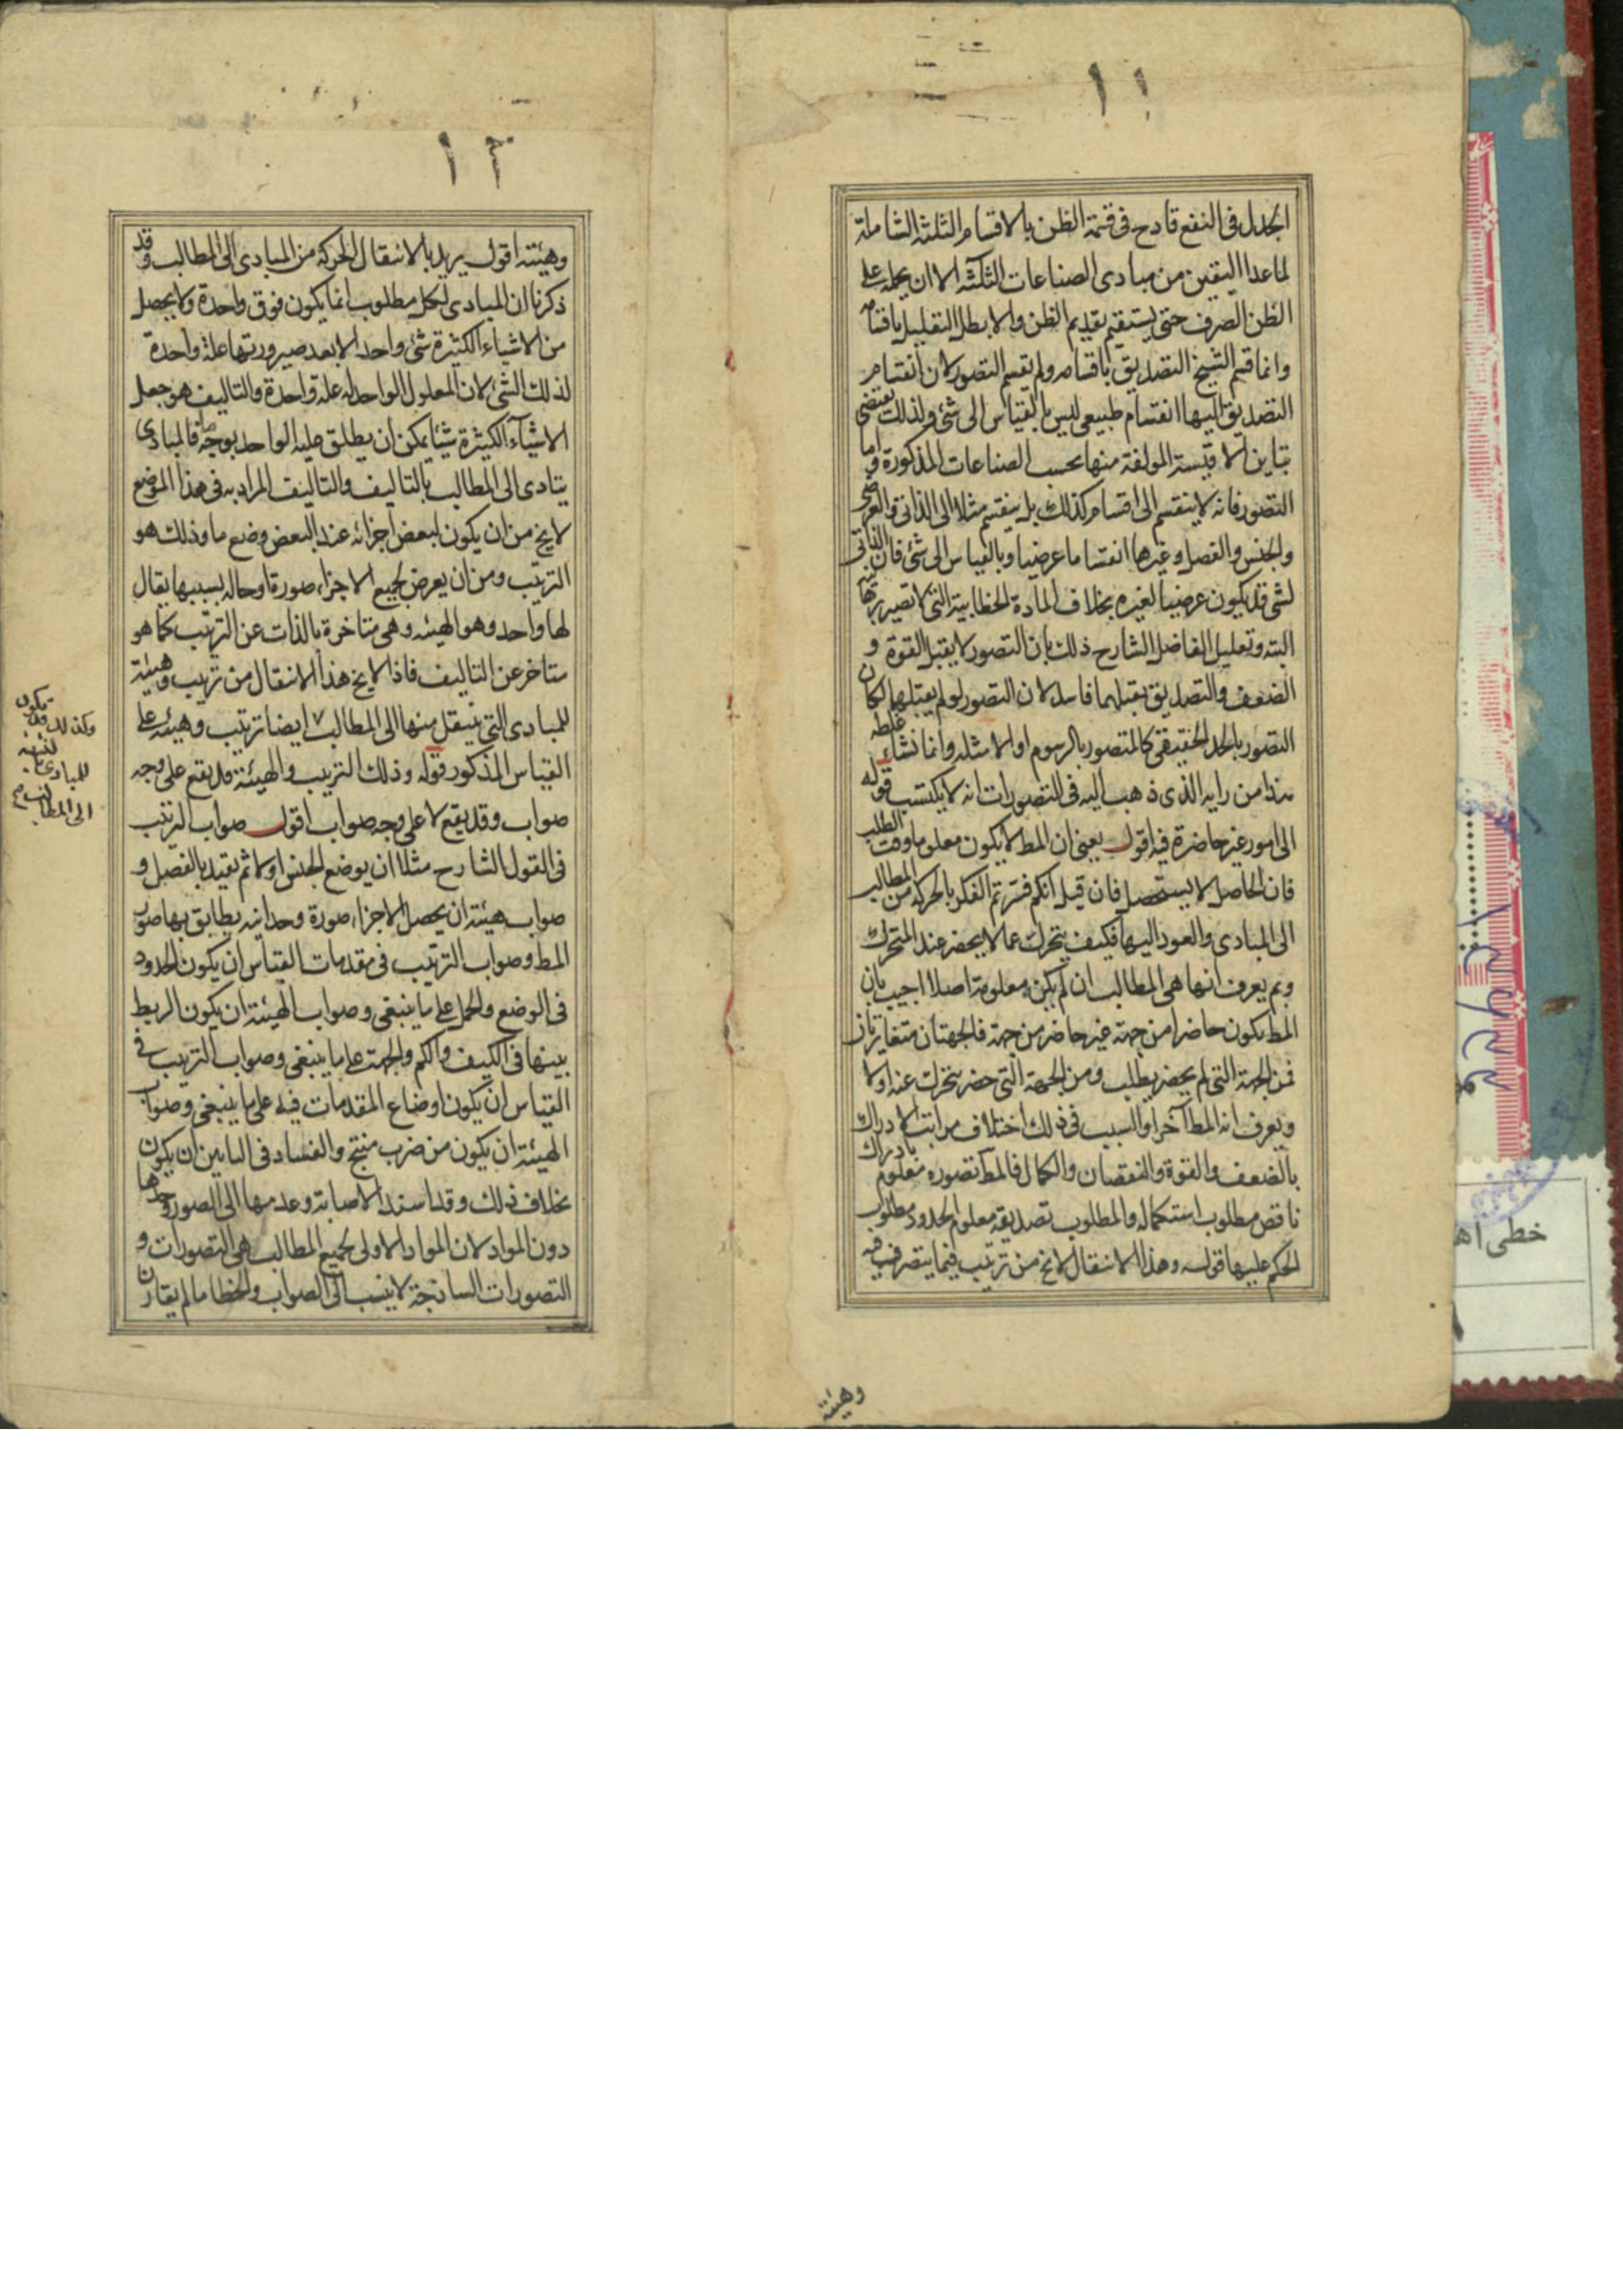 ١١
الجدل فى النفع قادح فى قسمة الظن بالاقسام الثلثة الشاملة
لما عدا اليقين من مبادى الصناعات الثلثة الا ان يحمله على
الظن الصرف حتى يستقيم تقديم الظن والا بطل التقليل باقسامه
وانما قسم الشيخ التصديق باقسامه ولم يقسم التصور لان انقسام
التصديق اليها انقسام طبيعى ليس بالقياس الى شئ ولذلك يقتضى
تباين الاقيسة المولفة منها بحسب الصناعات المذكورة واما
التصور فانه لا ينقسم الى اقسام كذلك بل ينقسم مثلا الى الذاتى والعرضى
والجنس والفصل وغيرها انقساما عرضيا وبالقياس الى شئ فان الذاتى
لشى قد يكون عرضيا لغيره بخلاف المادة الخطابية التى لا تصير برهانية
البته وتعليل الفاضل الشارح ذلك بان التصور لا يقبل القوة و
الضعف والتصديق يقبلهما فاسد لان التصور لو لم يقبلهما لكان
التصور بالحد الحقيقى كالمتصور بالرسوم او الامثله وانما نشاء غلطه
هذا من رايه الذى ذهب اليه فى التصورات انه لا يكتسب قوله
الى امور غير حاضرة فيه اقول يعنى ان المط لا يكون معلوما وقت الطلب
فان الحاصل لا يستحصل فان قيل انكم فسرتم الفكر بالحركة من المطالب
الى المبادى والعود اليها فكيف يتحرك عما لا يحضر عند المتحرك
وبم يعرف انها هى المطالب ان لم يكن معلومة اصلا اجيب بان
المط يكون حاضرا من جهة غير حاضر من جهة فالجهتان متغايرتان
فمن الجهة التى لم يحضر يطلب ومن الجهة التى حضر يتحرك عنه اولا
ويعرف انه المط آخرا والسبب فى ذلك اختلاف مراتب الادراك
بالضعف والقوة والنقصان والكمال فالمط تصوره معلوم بادراك
ناقص مطلوب استكماله والمطلوب تصديقه معلوم الحدود مطلوب
الحكم عليها قوله وهذا الانتقال لا يخ من ترتيب فيما يتصرف فيه
وهيئة
١٢
وهيئته اقول يريد بالانتقال الحركة من المبادى الى المطالب وقد
ذكرنا ان المبادى لكل مطلوب انما يكون فوق واحدة ولا يحصل
من الاشياء الكثيرة شئ واحد الا بعد صيرورتها علة واحدة
لذلك الشئ لان المعلول الواحد له علة واحدة والتاليف هو جعل
الاشياء الكثيرة شيئا يمكن ان يطلق عليه الواحد بوجه ما فالمبادى
يتادى الى المطالب بالتاليف والتاليف المراد به فى هذا الموضع
لا يخ من ان يكون لبعض اجزائه عند البعض وضع ما وذلك هو
الترتيب ومن ان يعرض لجميع الاجزاء صورة او حاله بسببها يقال
لها واحد وهو الهيئه وهى متاخرة بالذات عن الترتيب كما هو
متاخر عن التاليف فاذا لا يخ هذا الانتقال من ترتيب وهيئة
للمبادى التى ينتقل منها الى المطالب ٧ ايضا ترتيب وهيئه على
القياس المذكور قوله وذلك الترتيب والهيئة قد يقع على وجه
صواب وقد يقع لا على وجه صواب اقول صواب الترتيب
فى القول الشارح مثلا ان يوضع الجنس اولا ثم يقيد بالفصل و
صواب هيئته ان يحصل الاجزاء صورة وحدانيه يطابق بها صورة
المط وصواب الترتيب فى مقدمات القياس ان يكون الحدود
فى الوضع والحمل على ما ينبغى وصواب الهيئة ان يكون الربط
بينها فى الكيف والكم والجهت على ما ينبغى وصواب الترتيب فى
القياس ان يكون اوضاع المقدمات فيه على ما ينبغى وصواب
الهيئة ان يكون من ضرب منتج والفساد فى البابين ان يكون
بخلاف ذلك وقد اسند الاصابة وعدمها الى الصور وحدها
دون المواد لان المواد الاولى لجميع المطالب هى التصورات و
التصورات الساذجة لا ينسب الى الصواب والخطا ما لم يقارن
وكذلك قد يكون
للمبادى
الى المطالب صح
خطى اه